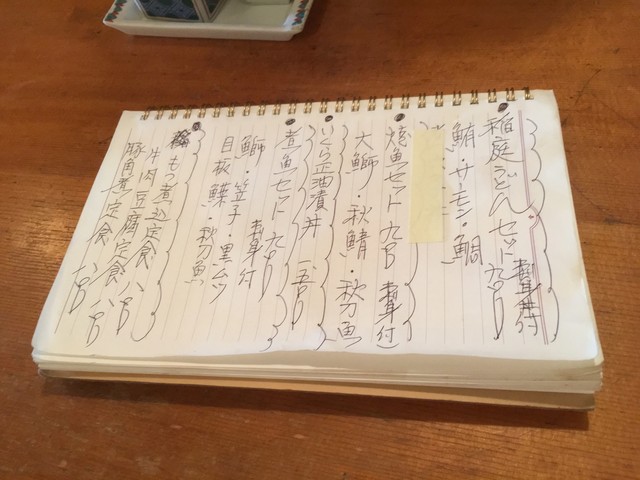 稲庭うどんセット 九百
鮪・サーモン・鯛
焼魚セット 九百
大鰤・秋鯖・秋刀魚
いくら正油漬丼 一五百
煮魚セット 九百
鰤・笠子・黒ムツ
目板鰈・秋刀魚
もつ煮込定食 八百
牛肉豆腐定食 八百
豚角煮定食 八百